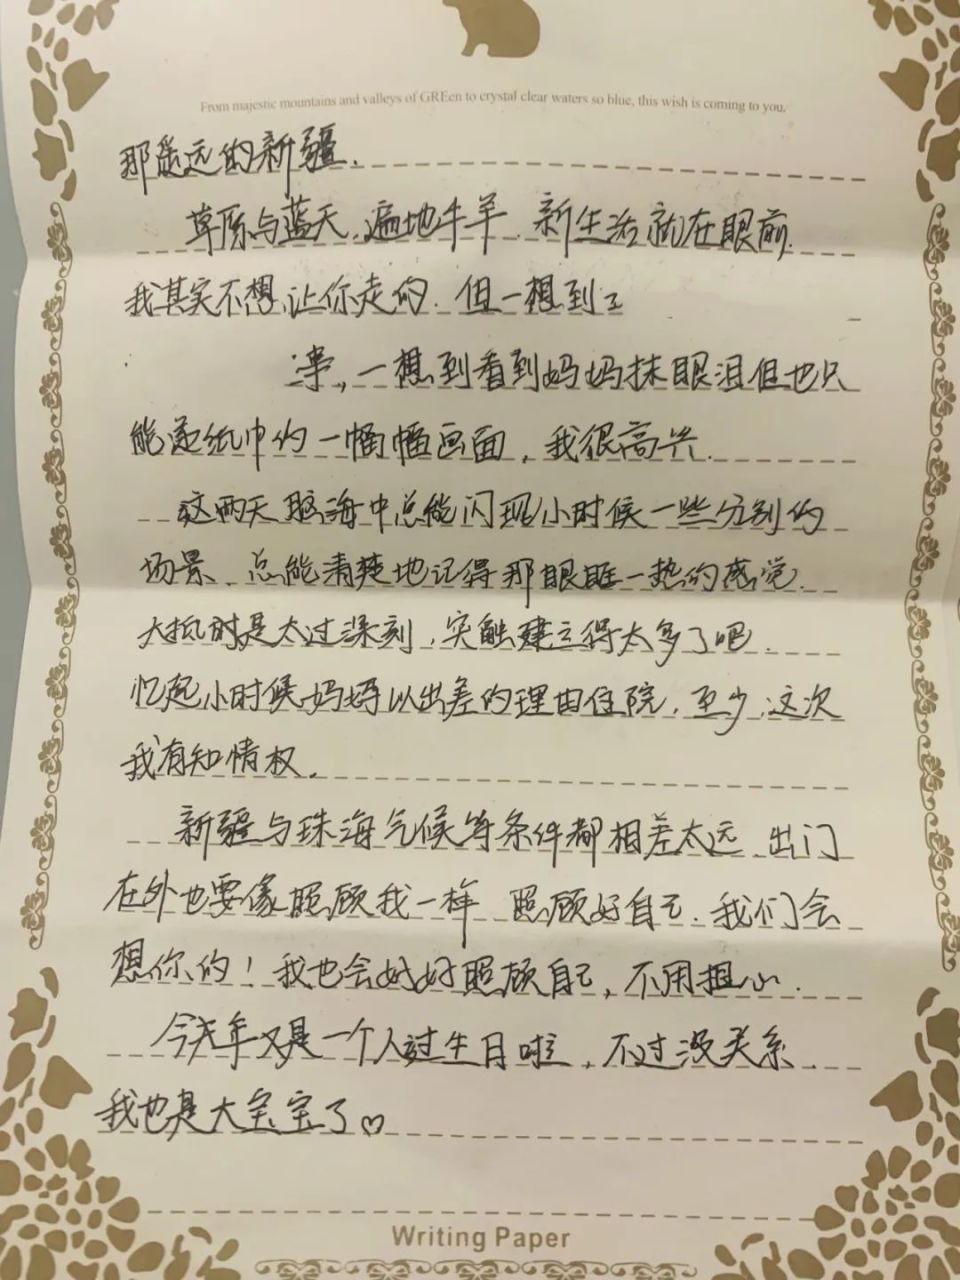 From majestic mountains and valleys of GREen to crystal clear waters so blue, this wish is coming to you.
那遥远的新疆.
草原与蓝天,遍地牛羊.新生活就在眼前.
我其实不想让你走的.但一想到
事,一想到看到妈妈抹眼泪但也只
能递纸巾的一幅幅画面,我很高兴.
这两天脑海中总能闪现小时候一些分别的
场景、总能清楚地记得那眼眶一热的感觉.
大抵是太过深刻,突触建立得太多了吧.
忆起小时候妈妈以出差的理由住院,至少,这次
我有知情权.
新疆与珠海气候等条件都相差太远、出门
在外也要像照顾我一样 照顾好自己.我们会
想你的!我也会好好照顾自己,不用担心.
今年又是一个人过生日啦,不过没关系.
我也是大宝宝了♡
Writing Paper